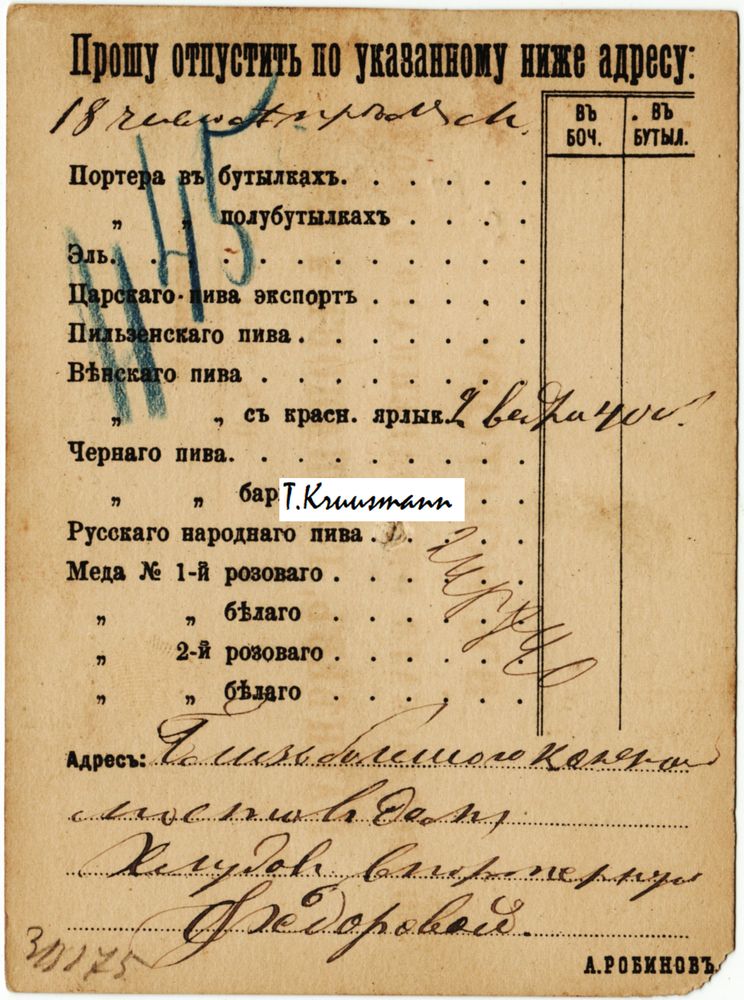 Прошу отпустить по указанному ниже адресу:
18
ВЪ БОЧ.
ВЪ БУТЫЛ.
№ 45
Портера въ бутылкахъ. . . . . .
„ „ полубутылкахъ . . . .
Эль. . . . . . . . . . .
Царскаго пива экспортъ . . . . .
Пильзенскаго пива . . . . . . .
Вѣнскаго пива . . . . . . . .
„ „ съ красн. ярлык. 2 ведра
Чернаго пива. . . . . . . . .
„ „ бар T. Kruusmann . .
Русскаго народнаго пива . . . . .
Меда № 1-й розоваго . . . . . .
„ „ бѣлаго . . . . . .
„ 2-й розоваго . . . . . .
„ „ бѣлаго . . . . . .
Адресъ: Близь большого
мосто дом
Хлудов в портерную
Федоровой.
А. РОБИНОВЪ